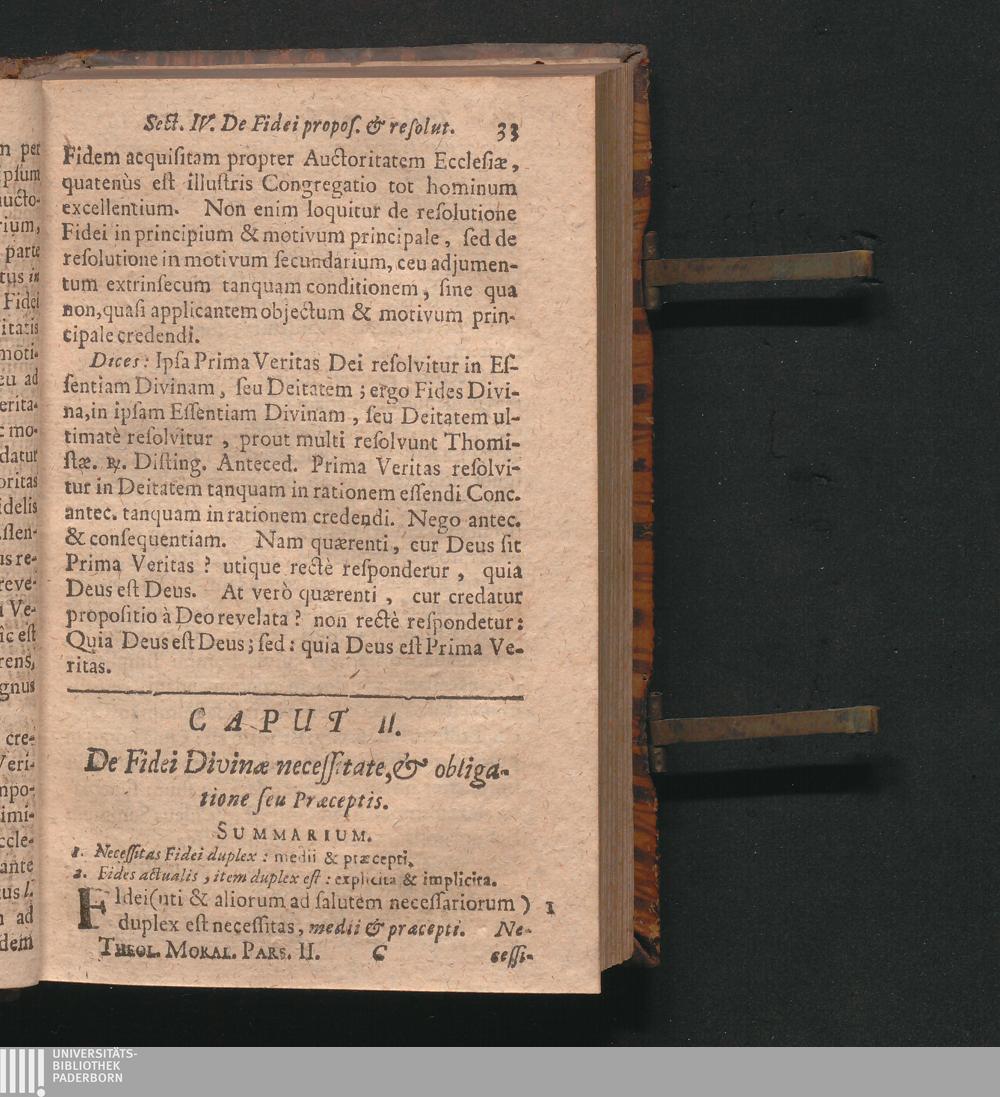 Sect. IV. De Fidei propos. & resolut. 33
Fidem acquisitam propter Auctoritatem Ecclesiæ,
quatenùs est illustris Congregatio tot hominum
excellentium. Non enim loquitur de resolutione
Fidei in principium & motivum principale, sed de
resolutione in motivum secundarium, ceu adjumen-
tum extrinsecum tanquam conditionem, sine qua
non, quasi applicantem objectum & motivum prin-
cipale credendi.
Dices: Ipsa Prima Veritas Dei resolvitur in Es-
sentiam Divinam, seu Deitatem; ergo Fides Divi-
na, in ipsam Essentiam Divinam, seu Deitatem ul-
timatè resolvitur, prout multi resolvunt Thomi-
stæ. ℟. Disting. Anteced. Prima Veritas resolvi-
tur in Deitatem tanquam in rationem essendi Conc.
antec. tanquam in rationem credendi. Nego antec.
& consequentiam. Nam quærenti, cur Deus sit
Prima Veritas? utique rectè responderur, quia
Deus est Deus. At verò quærenti, cur credatur
propositio à Deo revelata? non rectè respondetur:
Quia Deus est Deus; sed: quia Deus est Prima Ve-
ritas.
CAPUT II.
De Fidei Divinæ necessitate, & obliga-
tione seu Præceptis.
SUMMARIUM.
1. Necessitas Fidei duplex: medii & præcepti.
2. Fides actualis, item duplex est: explicita & implicita.
FIdei (uti & aliorum ad salutem necessariorum) 1
duplex est necessitas, medii & præcepti. Ne-
THEOL. MORAL. PARS. II. C cessi-
n per
ipsum
aucto-
rium,
parte
tus in
Fidei
itatis
moti-
eu ad
erita-
c mo-
datur
oritas
idelis
ssen-
us re-
reve-
a Ve-
ìc est
rens,
gnus
cre-
Veri-
npo-
imi-
ccle-
ante
tus l.
n ad
dem
UNIVERSITÄTS-
BIBLIOTHEK
PADERBORN